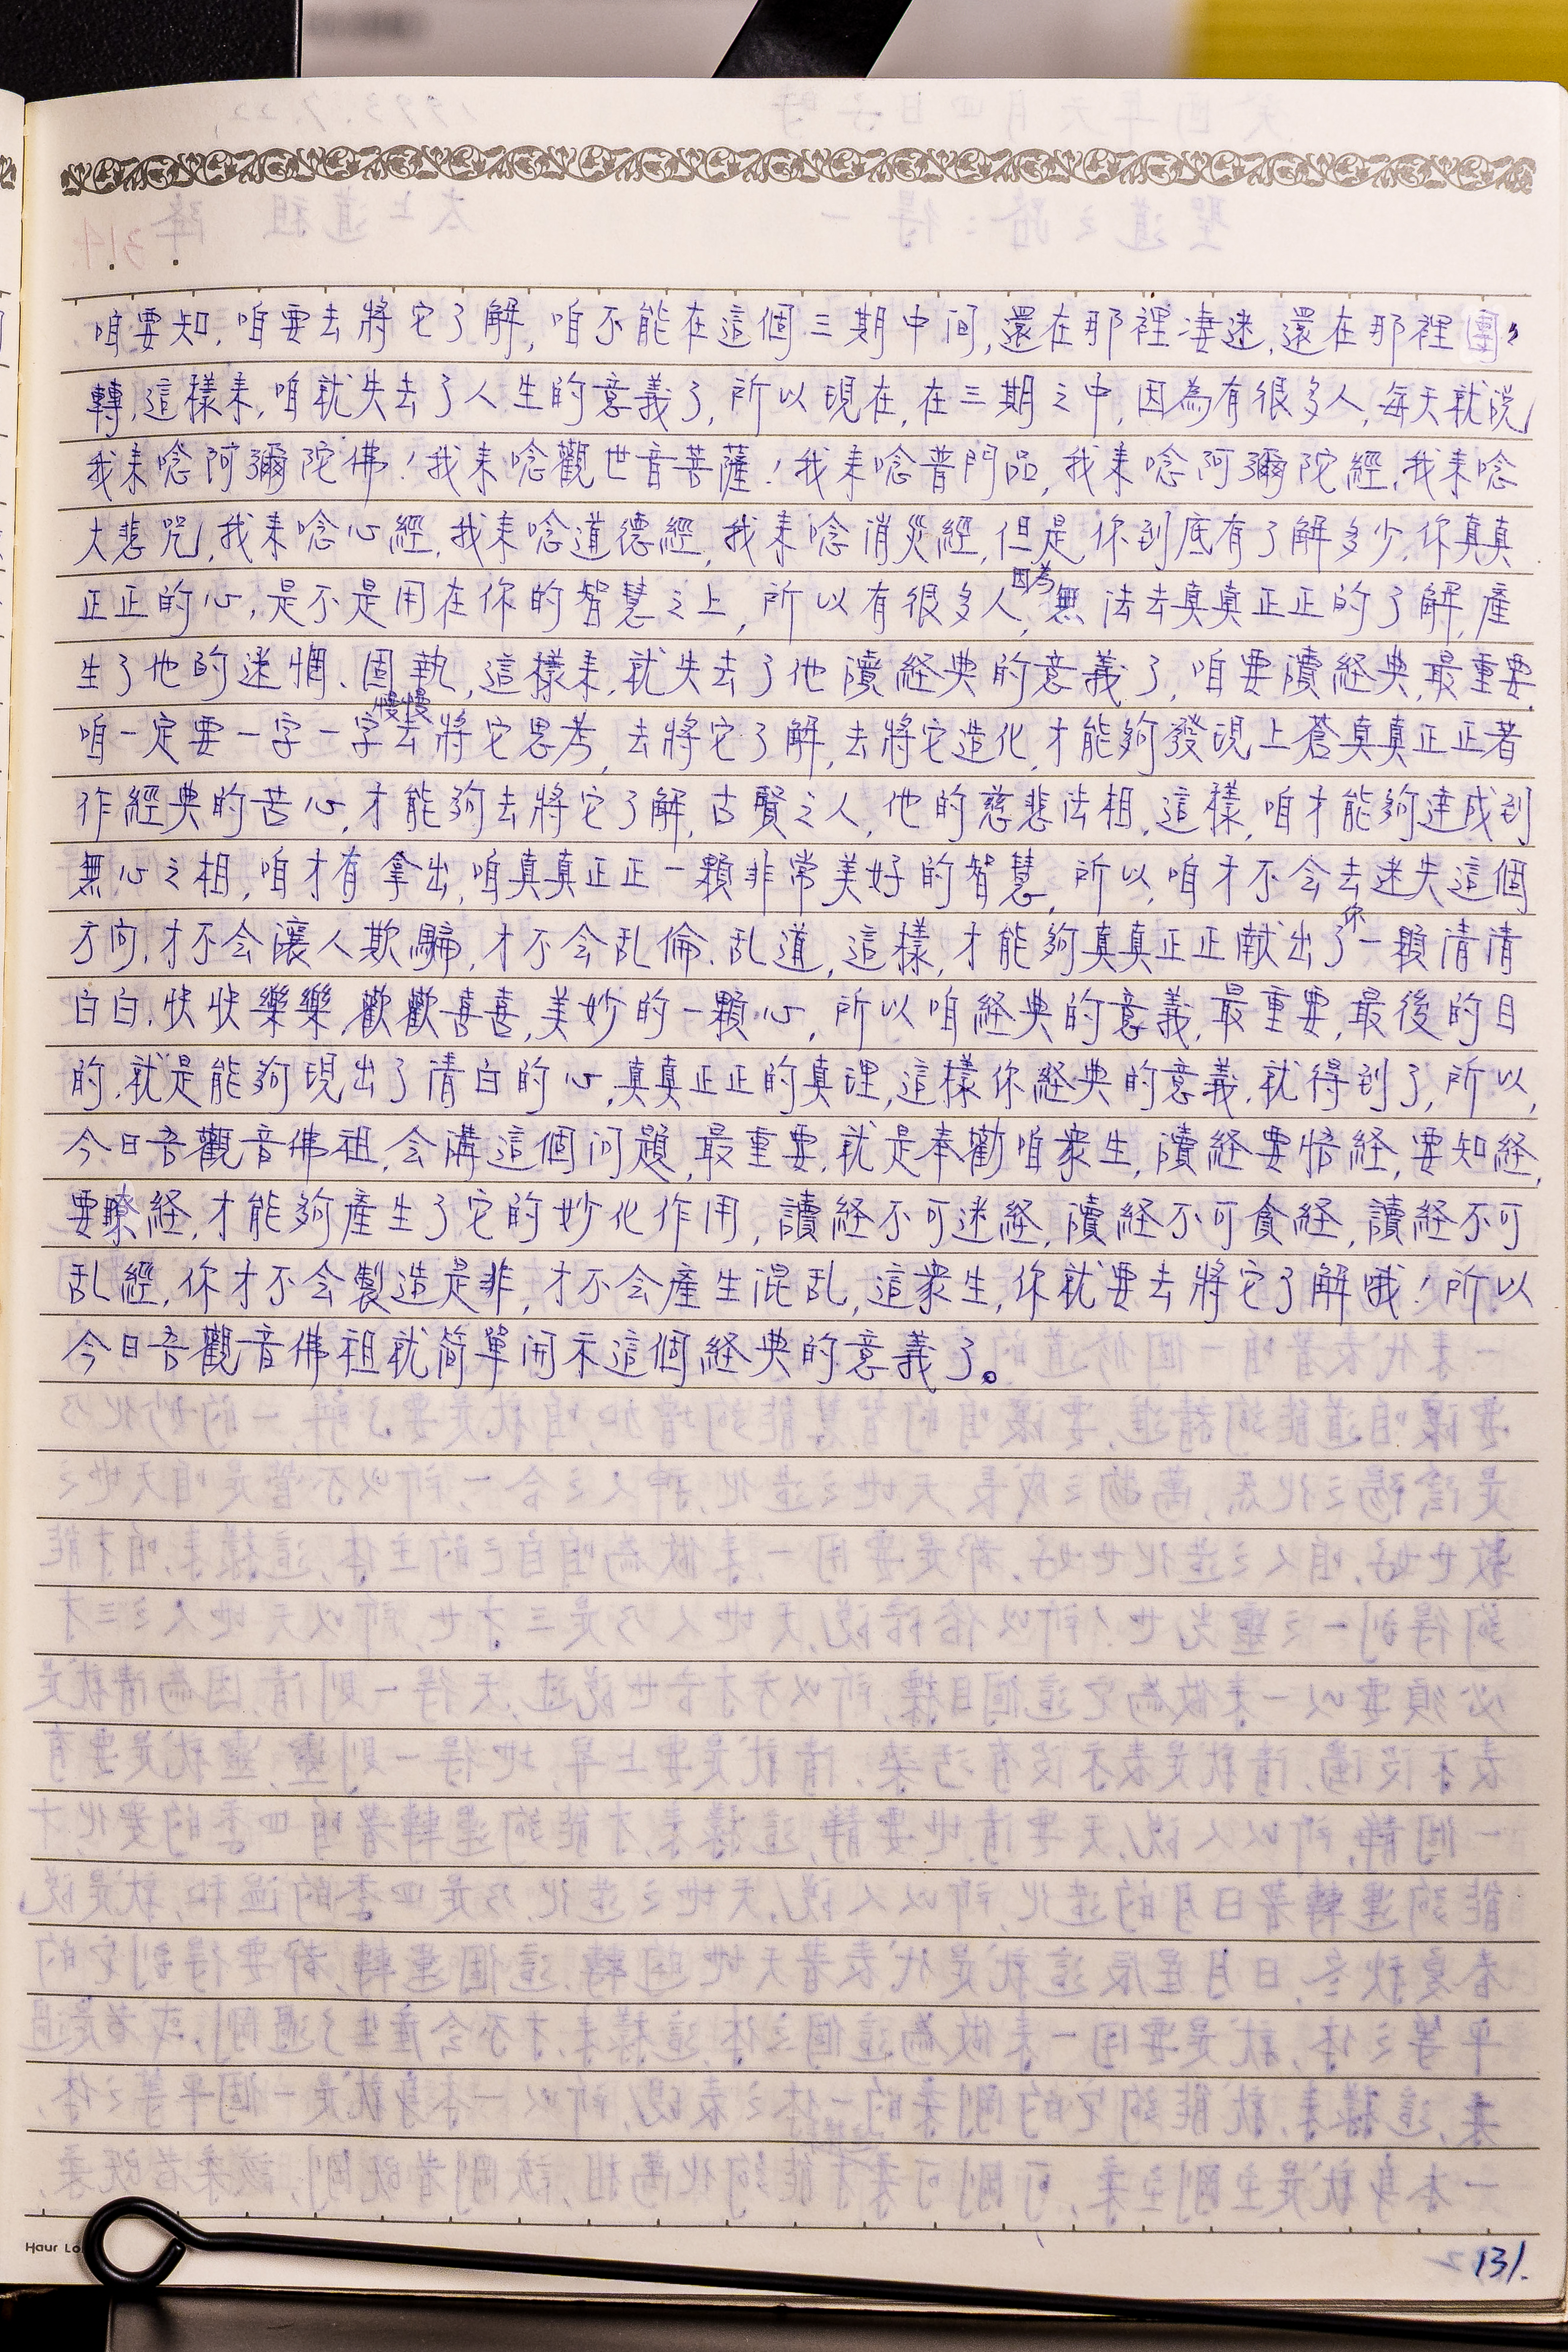 咱要知,咱要去將它了解,咱不能在這個三期中间,還在那裡凄迷,還在那裡團團
轉,這樣来,咱就失去了人生的意義了,所以現在,在三期之中,因為有很多人,每天就說,
我来唸阿彌陀佛!我来唸觀世音菩薩!我来唸普門品,我来唸阿彌陀經,我来唸
大悲咒,我来唸心經,我来唸道德經,我来唸消災經,但是,你到底有了解多少,你真真
正正的心,是不是用在你的智慧之上,所以有很多人,因為無法去真真正正的了解,產
生了他的迷惘、固執,這樣来,就失去了他讀経典的意義了,咱要讀経典,最重要,
咱一定要一字一字慢慢去將它思考,去將它了解,去將它造化,才能夠發現上蒼真真正正著
作經典的苦心,才能夠去將它了解,古賢之人,他的慈悲法相,這樣,咱才能夠達成到
無心之相,咱才有拿出,咱真真正正一顆非常美好的智慧,所以,咱才不会去迷失這個
方向,才不会讓人欺騙,才不会乱倫、乱道,這樣,才能夠真真正正献出了你一顆清清
白白,快快樂樂,歡歡喜喜,美妙的一顆心,所以咱経典的意義,最重要,最後的目
的,就是能夠現出了清白的心,真真正正的真理,這樣你経典的意義,就得到了,所以,
今日吾觀音佛祖,会講這個问題,最重要,就是奉勸咱衆生,讀経要悟経,要知経,
要瞭経,才能夠產生了它的妙化作用,讀経不可迷経,讀経不可貪経,讀経不可
乱經,你才不会製造是非,才不会產生混乱,這衆生,你就要去將它了解哦!所以
今日吾觀音佛祖就简單開示這個経典的意義了。
131.